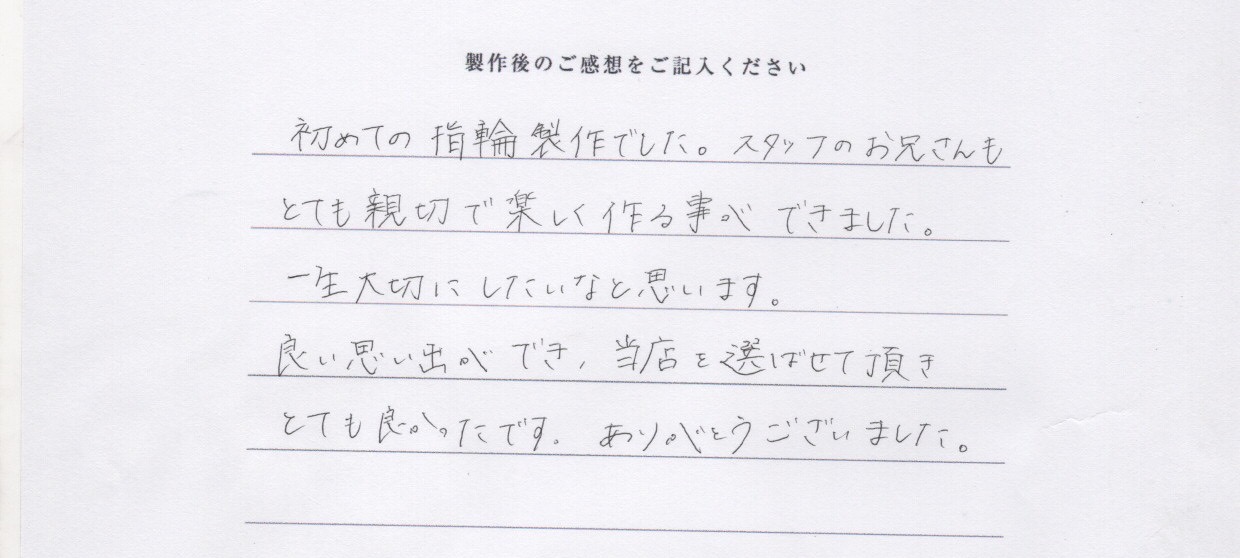 製作後のご感想をご記入ください
初めての指輪製作でした。スタッフのお兄さんも
とても親切で楽しく作る事ができました。
一生大切にしたいなと思います。
良い思い出ができ、当店を選ばせて頂き
とても良かったです。ありがとうございました。